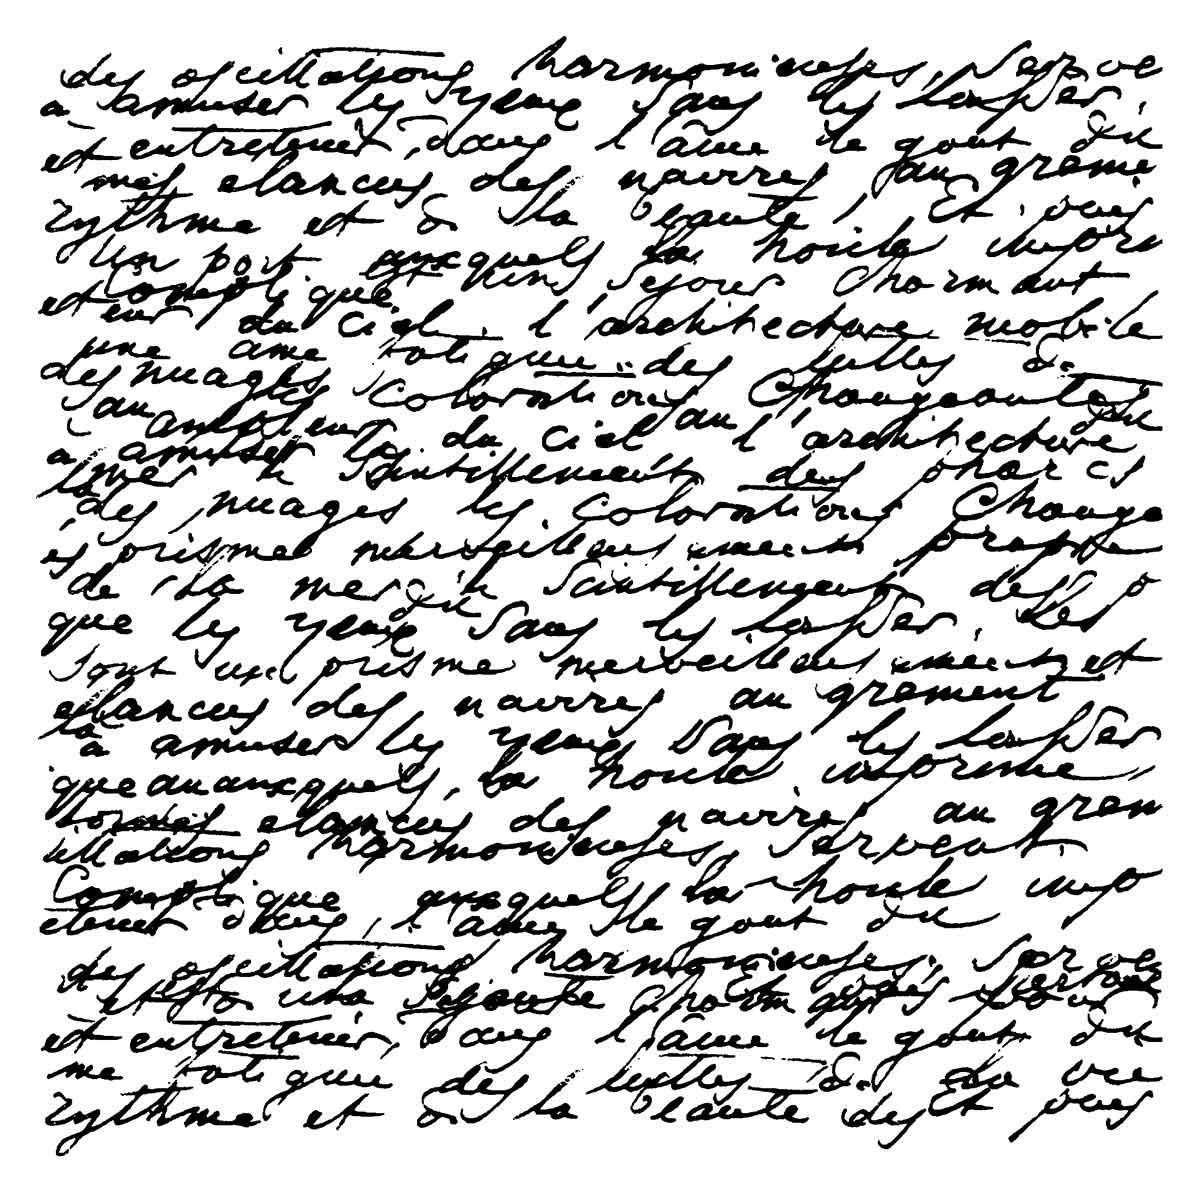 des oscillations harmonieuses, Serve
à amuser les yeux Sans les lasser,
et entretenir, dans l'âme le gout du
elancees des navires au greme
rythme et de la beauté, Et
Un port auxquels la houle impri
et Compliqué un Sejour Charmant
du Ciel, l'architecture mobile
une ame fatiguee des luttes de
des nuages les Colorations Changeantes
au ampleur du Ciel au l'architecture du
à amuser les
la mer le Scintillement des phares
des nuages les Colorations Change
es prisme merveilleusement propre
de la mer du Scintillement des p
que les yeux Sans les lasser, Les
Sont un prisme merveilleusement et
elancees des navires au grement
la
à amuser les yeux Sans les lasser
que au auxquels, la houle imprime
formes elancees des navires au grem
illations harmonieuses, Servent
Complique auxquels la houle imp
etenir dans, l'âme le gout du
des oscillations harmonieuses. Serve
et est un Sejour Charmant
et entretenir, dans l'âme le gout du
me fatiguee des luttes de la vie
rythme et de la beauté des Et